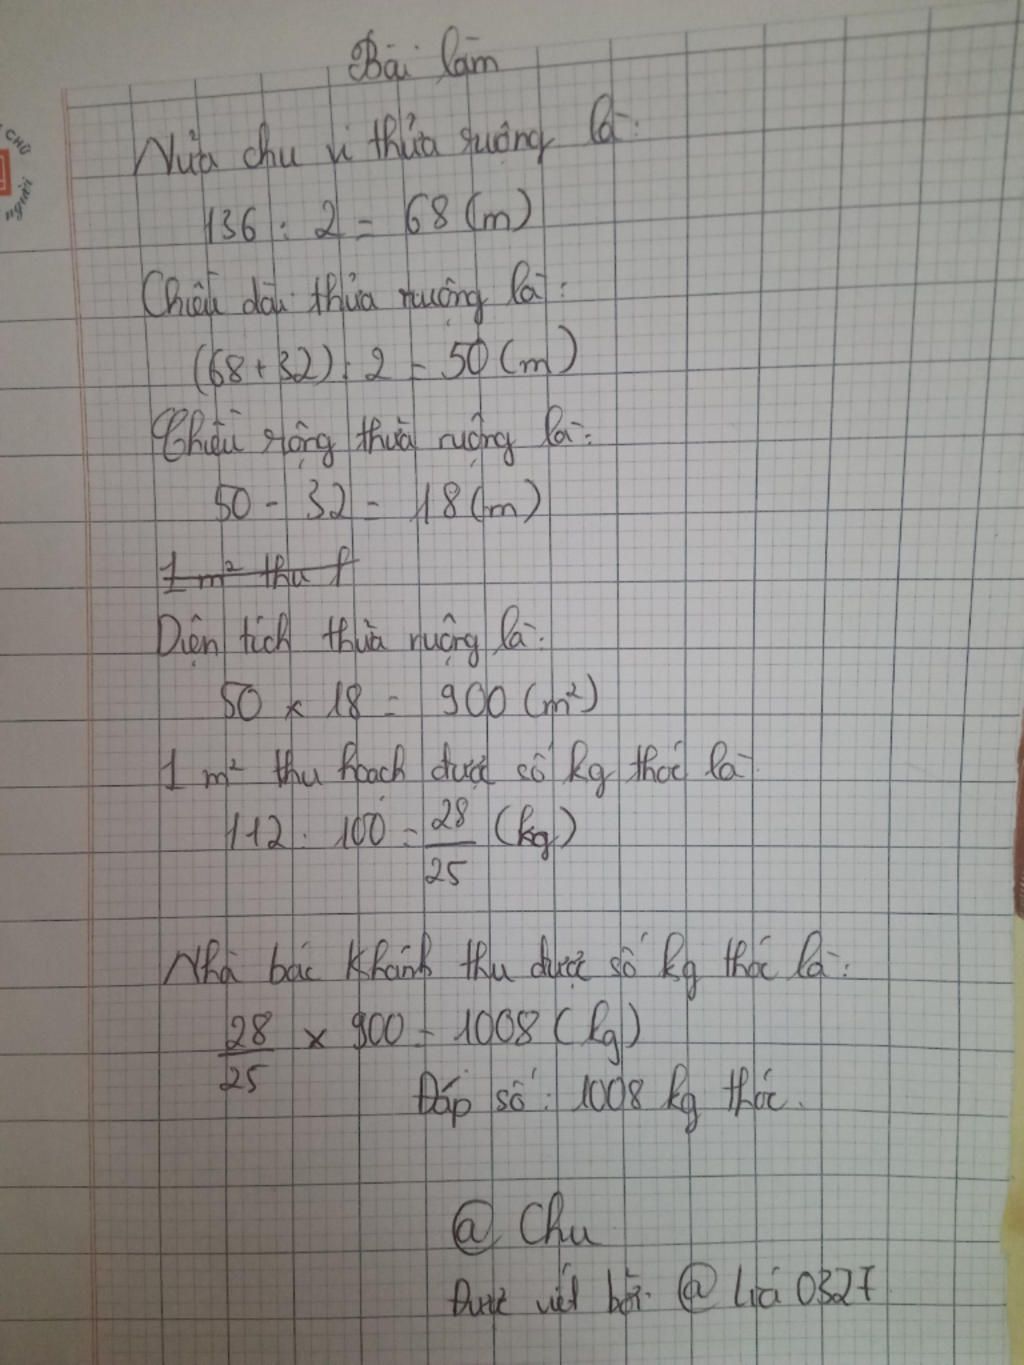 CHỮ
người
Bài làm
Nửa chu vi thửa ruộng là:
136 : 2 = 68 (m)
Chiều dài thửa ruộng là:
(68 + 32) : 2 = 50 (m)
Chiều rộng thửa ruộng là:
50 - 32 = 18 (m)
1 m² thu
Diện tích thửa ruộng là:
50 x 18 = 900 (m²)
1 m² thu hoạch được số kg thóc là:
112 : 100 = 28/25 (kg)
Nhà bác Khánh thu được số kg thóc là:
28/25 x 900 = 1008 (kg)
Đáp số : 1008 kg thóc.
@ Chu
Được viết bởi @ 0327